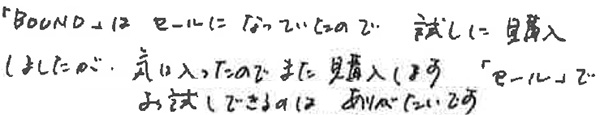 「BOUND」は セールに なっていたので 試しに 購入
しましたが、気に入ったので また 購入します 「セール」で
お試しできるのは ありがたいです